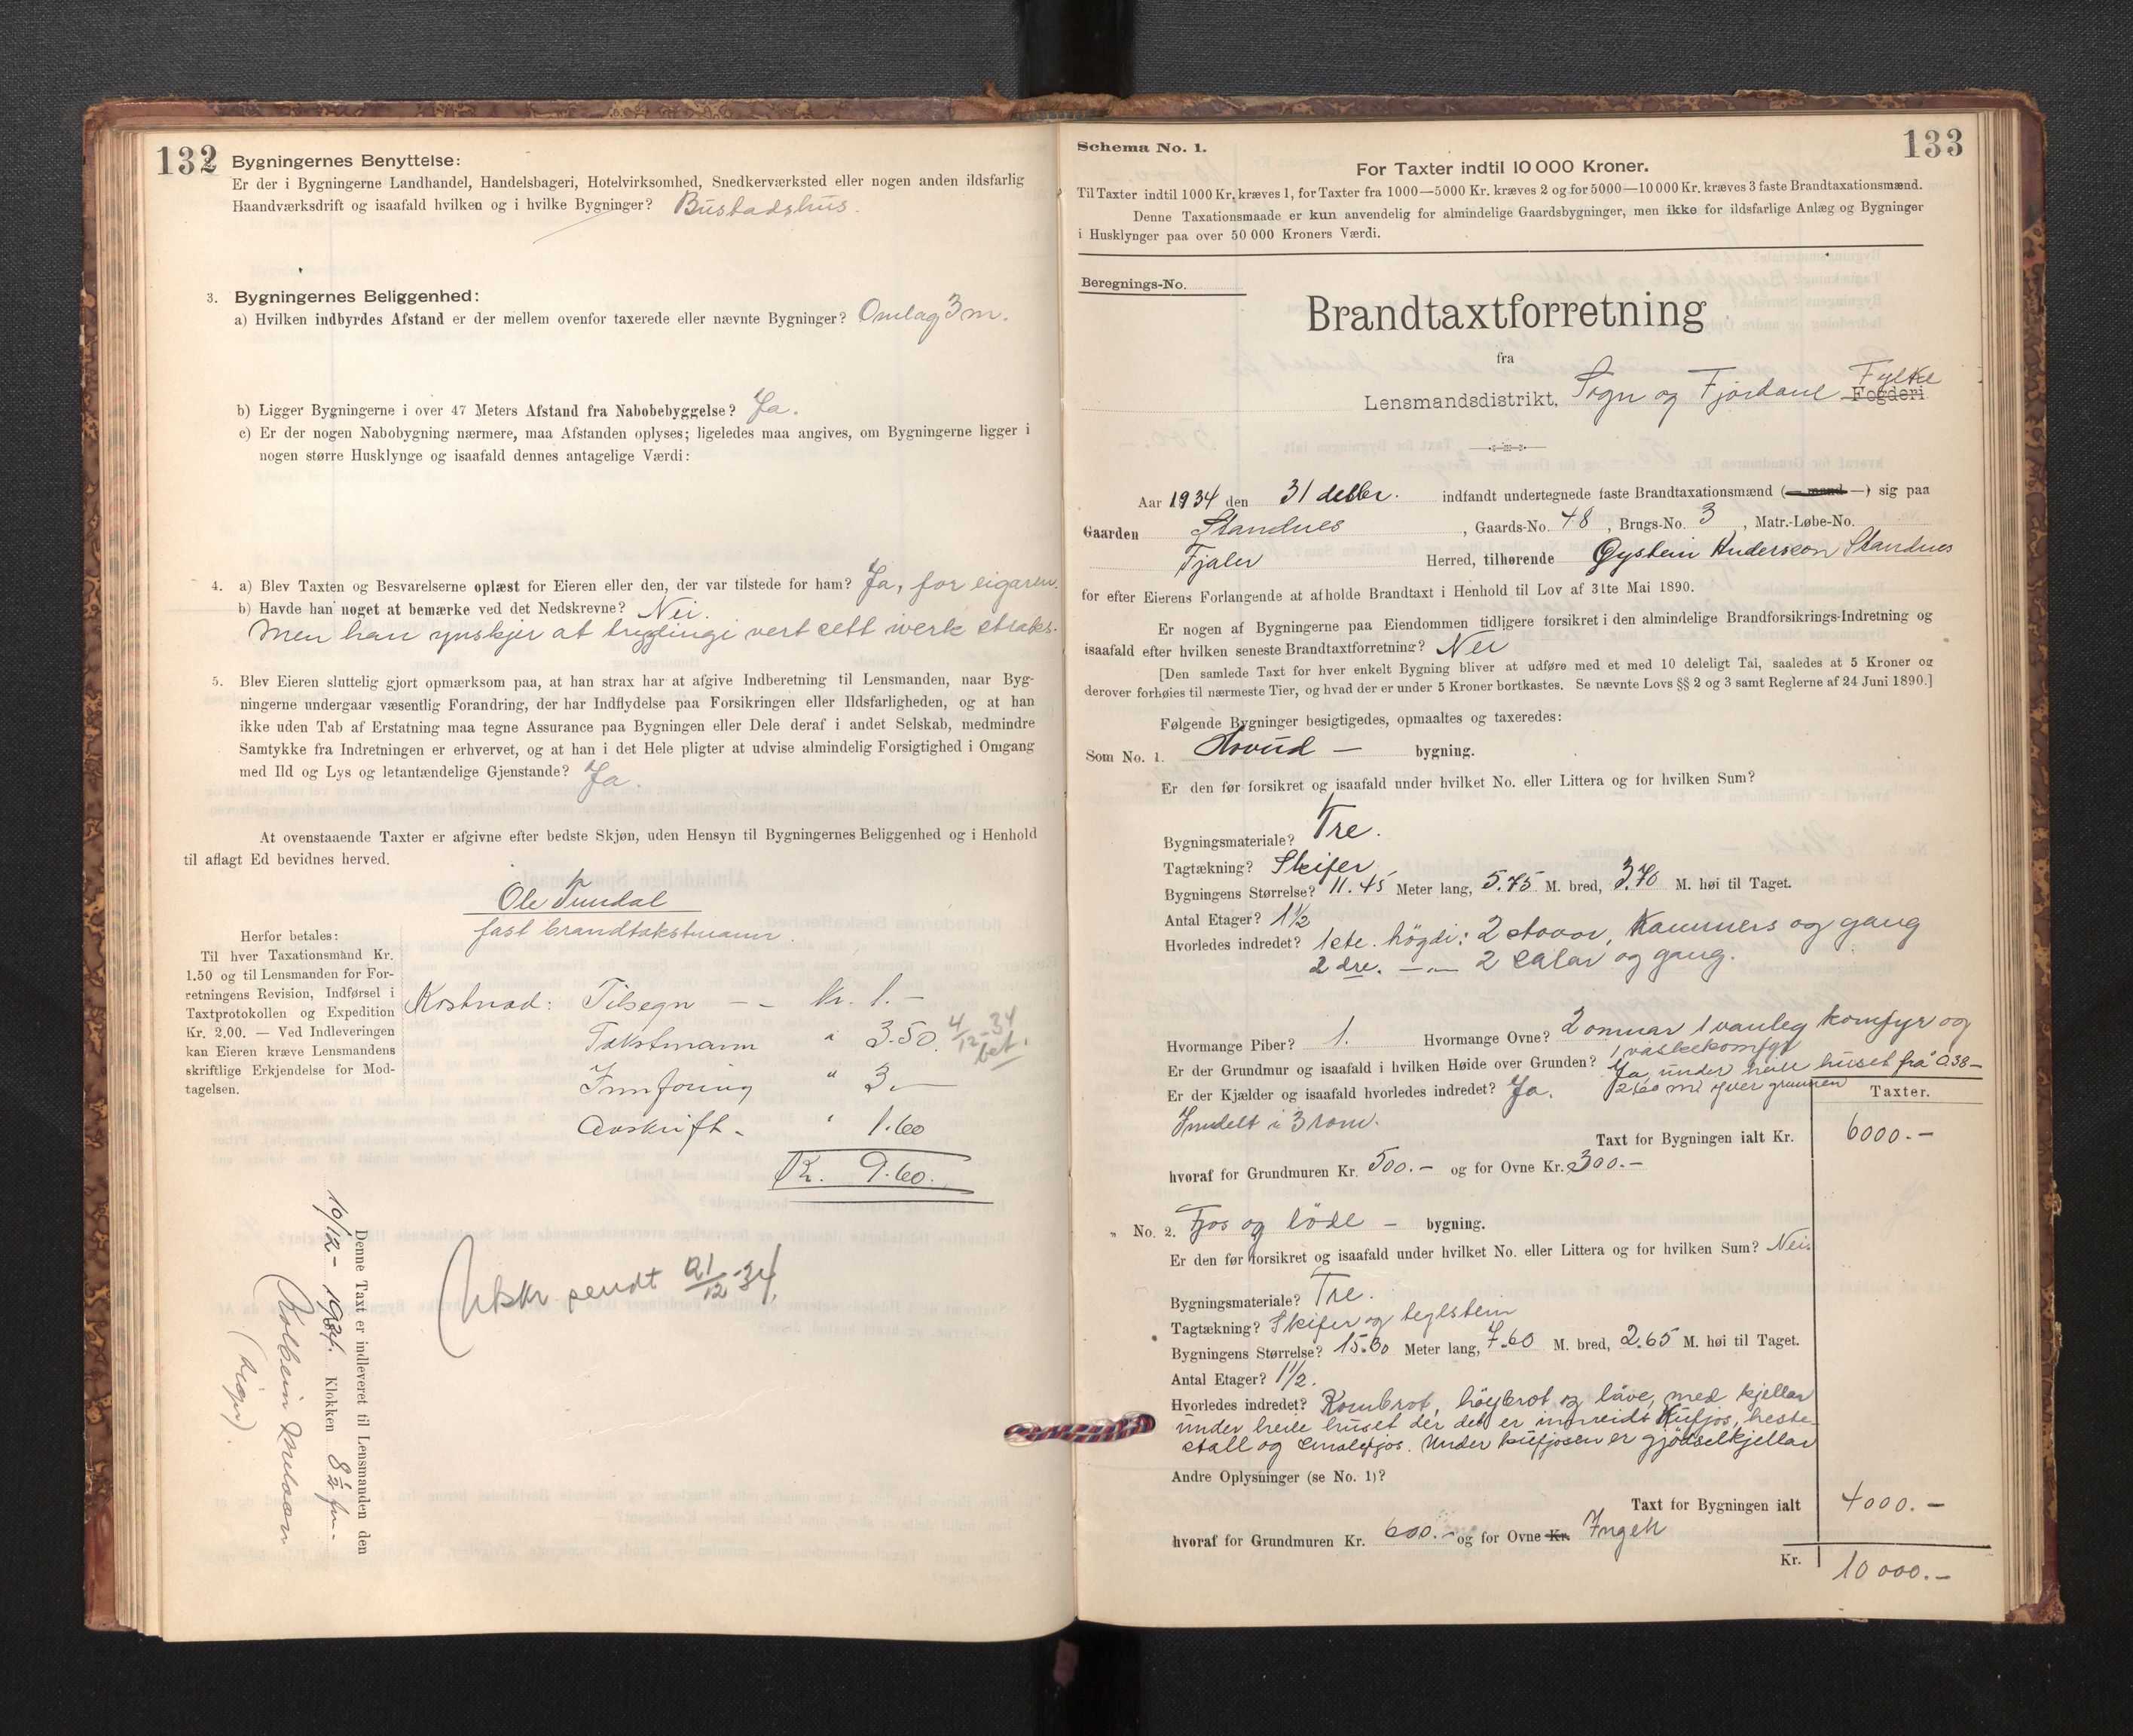 132
Bygningernes Benyttelse:
Er der i Bygningerne Landhandel, Handelsbageri, Hotelvirksomhed, Snedkerværksted eller nogen anden ildsfarlig
Haandværksdrift og isaafald hvilken og i hvilke Bygninger? Bustadshus.
3. Bygningernes Beliggenhed:
a) Hvilken indbyrdes Afstand er der mellem ovenfor taxerede eller nævnte Bygninger? Omlag 3 m.
b) Ligger Bygningerne i over 47 Meters Afstand fra Nabobebyggelse? Ja.
c) Er der nogen Nabobygning nærmere, maa Afstanden oplyses; ligeledes maa angives, om Bygningerne ligger i
nogen større Husklynge og isaafald dennes antagelige Værdi:
4. a) Blev Taxten og Besvarelserne oplæst for Eieren eller den, der var tilstede for ham? Ja, for eigaren.
b) Havde han noget at bemærke ved det Nedskrevne? Nei.
Men han ynskjer at trygdingi vert sett i verk straks.
5. Blev Eieren sluttelig gjort opmærksom paa, at han strax har at afgive Indberetning til Lensmanden, naar Byg-
ningerne undergaar væsentlig Forandring, der har Indflydelse paa Forsikringen eller Ildsfarligheden, og at han
ikke uden Tab af Erstatning maa tegne Assurance paa Bygningen eller Dele deraf i andet Selskab, medmindre
Samtykke fra Indretningen er erhvervet, og at han i det Hele pligter at udvise almindelig Forsigtighed i Omgang
med Ild og Lys og letantændelige Gjenstande? Ja
At ovenstaaende Taxter er afgivne efter bedste Skjøn, uden Hensyn til Bygningernes Beliggenhed og i Henhold
til aflagt Ed bevidnes herved.
Ole
fast brandtakstmann.
Herfor betales:
Til hver Taxationsmand Kr.
1.50 og til Lensmanden for For-
retningens Revision, Indførsel i
Taxtprotokollen og Expedition
Kr. 2.00. — Ved Indleveringen
kan Eieren kræve Lensmandens
skriftlige Erkjendelse for Mod-
tagelsen.
Kostnad: Tilsegn — - kr. 1.—
Takstmann " 3.50
4/12-34
bet.
Innføring " 3.—
Avskrift - " 1.60
Kr. 9.60.
Denne Taxt er indleveret til Lensmanden den
10/12 - 1934. Klokken 8 1/2 fm.
Kolbein Nilsson
(sign)
Utskr. sendt 21/12-34.
133
Schema No. 1.
For Taxter indtil 10 000 Kroner.
Til Taxter indtil 1000 Kr. kræves 1, for Taxter fra 1000—5000 Kr. kræves 2 og for 5000—10000 Kr. kræves 3 faste Brandtaxationsmænd.
Denne Taxationsmaade er kun anvendelig for almindelige Gaardsbygninger, men ikke for ildsfarlige Anlæg og Bygninger
i Husklynger paa over 50 000 Kroners Værdi.
Beregnings-No.
Brandtaxtforretning
fra
Lensmandsdistrikt, Sogn og Fjordane Fylke Fogderi
Aar 1934 den 31 indfandt undertegnede faste Brandtaxationsmænd (— mand —) sig paa
Gaarden Standnes, Gaards-No. 48, Brugs-No. 3, Matr.-Løbe-No.
Fjaler Herred, tilhørende Øystein Anderson Standnes
for efter Eierens Forlangende at afholde Brandtaxt i Henhold til Lov af 31te Mai 1890.
Er nogen af Bygningerne paa Eiendommen tidligere forsikret i den almindelige Brandforsikrings-Indretning og
isaafald efter hvilken seneste Brandtaxtforretning? Nei
[Den samlede Taxt for hver enkelt Bygning bliver at udføre med et med 10 deleligt Tal, saaledes at 5 Kroner og
derover forhøies til nærmeste Tier, og hvad der er under 5 Kroner bortkastes. Se nævnte Lovs §§ 2 og 3 samt Reglerne af 24 Juni 1890.]
Følgende Bygninger besigtigedes, opmaaltes og taxeredes:
Som No. 1. Hovud — bygning.
Er den før forsikret og isaafald under hvilket No. eller Littera og for hvilken Sum?
Bygningsmateriale? Tre.
Tagtækning? Skifer
Bygningens Størrelse? 11.45 Meter lang, 5.75 M. bred, 3.70 M. høi til Taget.
Antal Etager? 1 1/2
Hvorledes indredet? 1ste. høgdi: 2 stovor, Kammers og gang
2dre. —"— 2 salar og gang.
Hvormange Piber? 1. Hvormange Ovne? 2 omnar 1 vanleg komfyr og
1 vaskekomfyr
Er der Grundmur og isaafald i hvilken Høide over Grunden? Ja, under heile huset frå 0.38—
2.60 m. yver grunnen
Er der Kjælder og isaafald hvorledes indredet? Ja.
Inndelt i 3 rom.
Taxter.
Taxt for Bygningen ialt Kr. 6000.—
hvoraf for Grundmuren Kr. 500.— og for Ovne Kr. 300.—
„ No. 2. Fjos og løde — bygning.
Er den før forsikret og isaafald under hvilket No. eller Littera og for hvilken Sum? Nei.
Bygningsmateriale? Tre.
Tagtækning? Skifer og teglstein
Bygningens Størrelse? 15.60 Meter lang, 7.60 M. bred, 2.65 M. høi til Taget.
Antal Etager? 1 1/2.
Hvorledes indredet? Kornbrot, høybrot og låve, med kjellar
under heile huset der det er innreidt Kufjos, heste-
stall og smalefjos. Under kufjosen er gjødselkjellar
Andre Oplysninger (se No. 1)?
Taxt for Bygningen ialt 4000.—
hvoraf for Grundmuren Kr. 600.— og for Ovne Kr. Ingen
Kr. 10 000.—